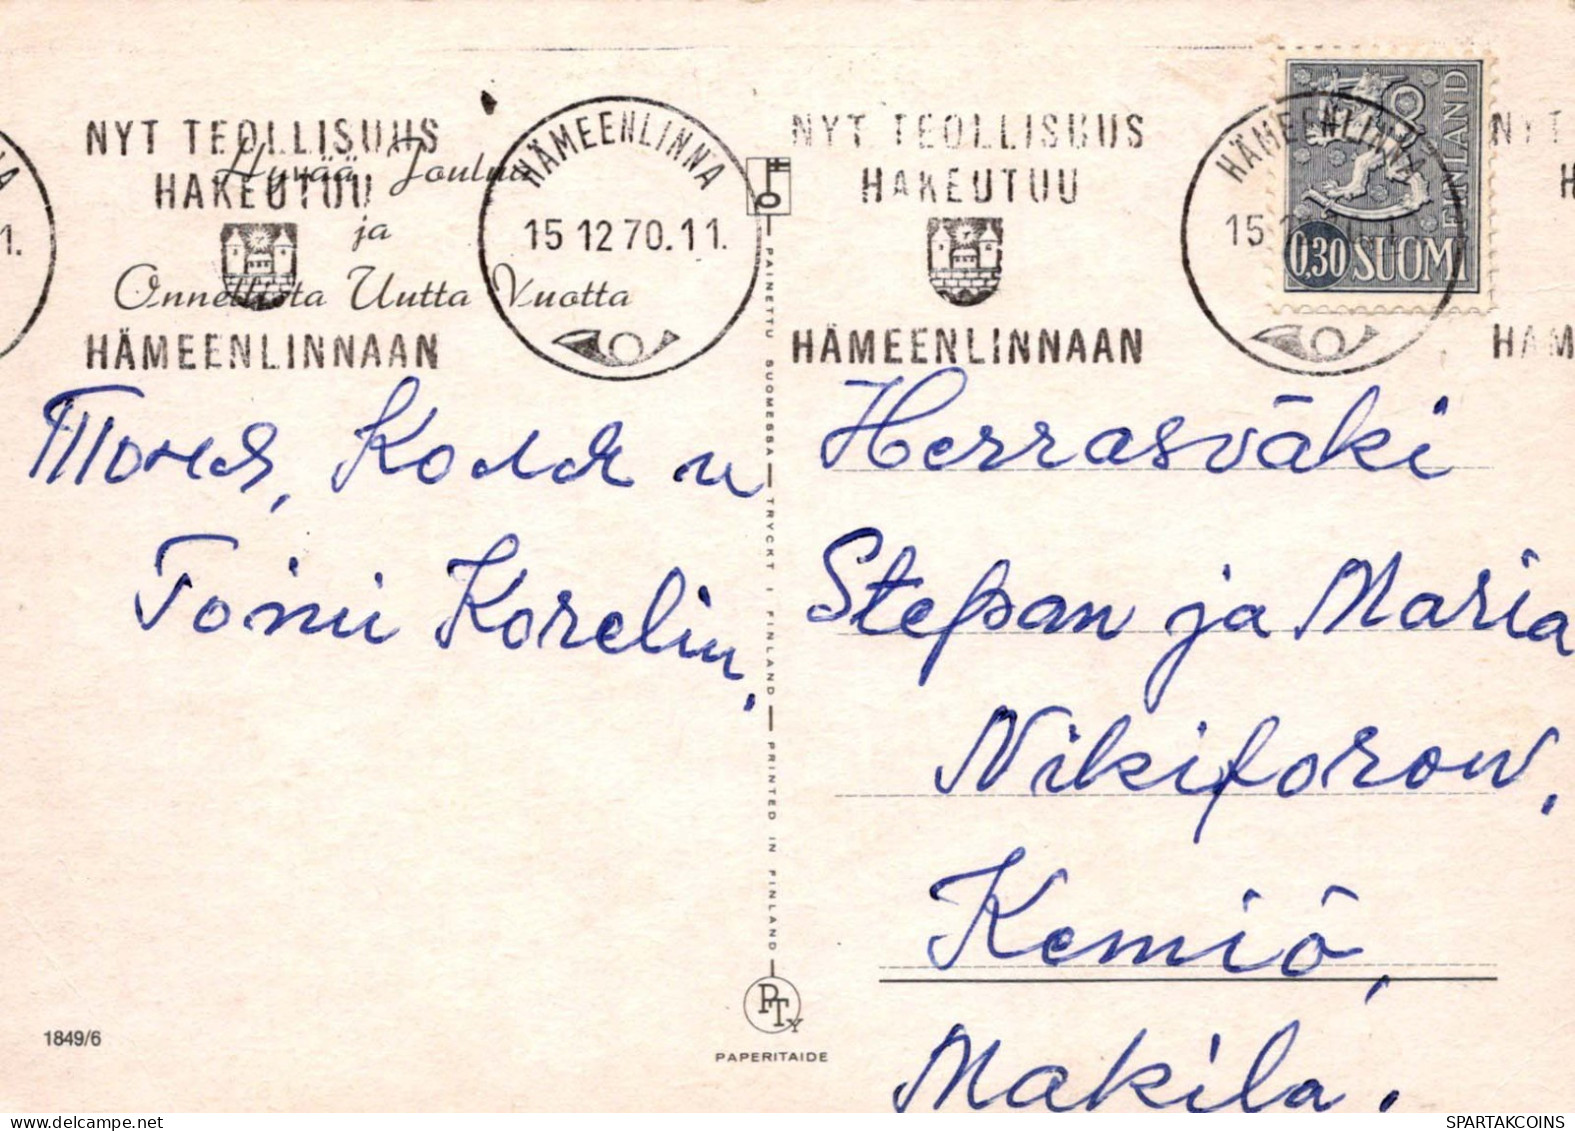 NYT TEOLLISUUS
HAKEUTUU
HÄMEENLINNAAN
Hyvää Joulua
ja
Onnellista Uutta Vuotta
HÄMEENLINNA
15 12 70.11.
NYT TEOLLISUUS
HAKEUTUU
HÄMEENLINNAAN
HÄMEENLINNA
15
FINLAND
0,30 SUOMI
Тоня, Коля и
Toini Korelin,
PAINETTU SUOMESSA — TRYCKT I FINLAND — PRINTED IN FINLAND
Herrasväki
Stepan ja Maria
Nikiforow,
Kemiö,
Makila.
1849/6
PTy
PAPERITAIDE
SPARTAKCOINS